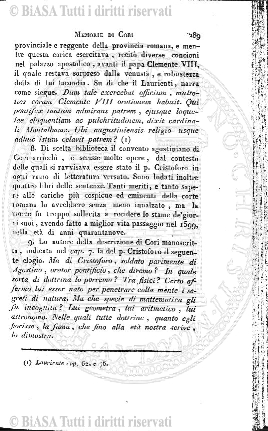 MEMORIE DI CORI 289
provinciale e reggente della provincia romana, e men-
tre questa carica esercitava, recitò diverse concioni
nel palazzo apostolico, avanti il papa Clemente VIII,
il quale restava sorpreso dalla venustà, e robustezza
della di lui facondia. Su di che il Laurienti, narra
come siegue. Dum tale exerceebat officium, multo-
ties coram Clemente VIII contionem habuit. Qui
pontifex hominem admirans patrem, ejusque loque-
lae eloquentiam ac pulchritudinem, dixit cardina-
li Montelbano. Ubi augustiniensis religio usque
adhuc istum celavit patrem? (1)
8. Di scelta biblioteca il convento agostiniano di
Cori arricchì, e scrisse molte opere, dal contesto
delle quali si ravvisava essere stato il p. Cristoforo in
ogni ramo di letteratura versato. Sono lodati inoltre
quattro libri delle sentenze. Tanti meriti, e tanto sape-
re alle cariche più cospicue ed eminenti della corte
romana lo avrebbero senza meno innalzato, ma la
morte fu troppo sollecita a recidere lo stame de' gior-
ni suoi, avendo fatto a miglior vita passaggio nel 1599,
nella età di anni quarantanove.
9. Lo autore della descrizione di Cori manoscrit-
ta, indicato nel cap. 7. fa del p. Cristoforo il seguen-
te elogio. Ma di Cristoforo, soldato parimente di
Agostino, orator pontificio, che diremo? In quale
sorta di dottrina lo porremo? Tra fisici? Certo af-
fermo lui esser nato per penetrare colla mente i se-
greti di natura. Ma che specie di mattematica gli
fu incognita? Lui geometra, lui aritmetico, lui
astronomo. Nelle quali tutte dottrine, quanto egli
fiorisse, la fama, che fino alla età nostra scrive,
lo dimostra.
(1) Laurienti cap. 62. e 76.